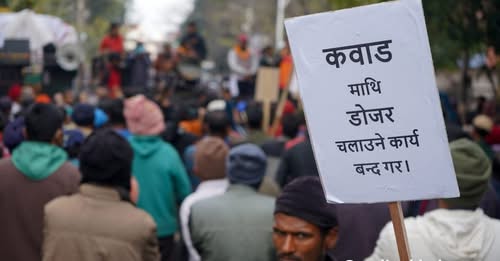 कवाड
माथि
डोजर
चलाउने कार्य
बन्द गर।